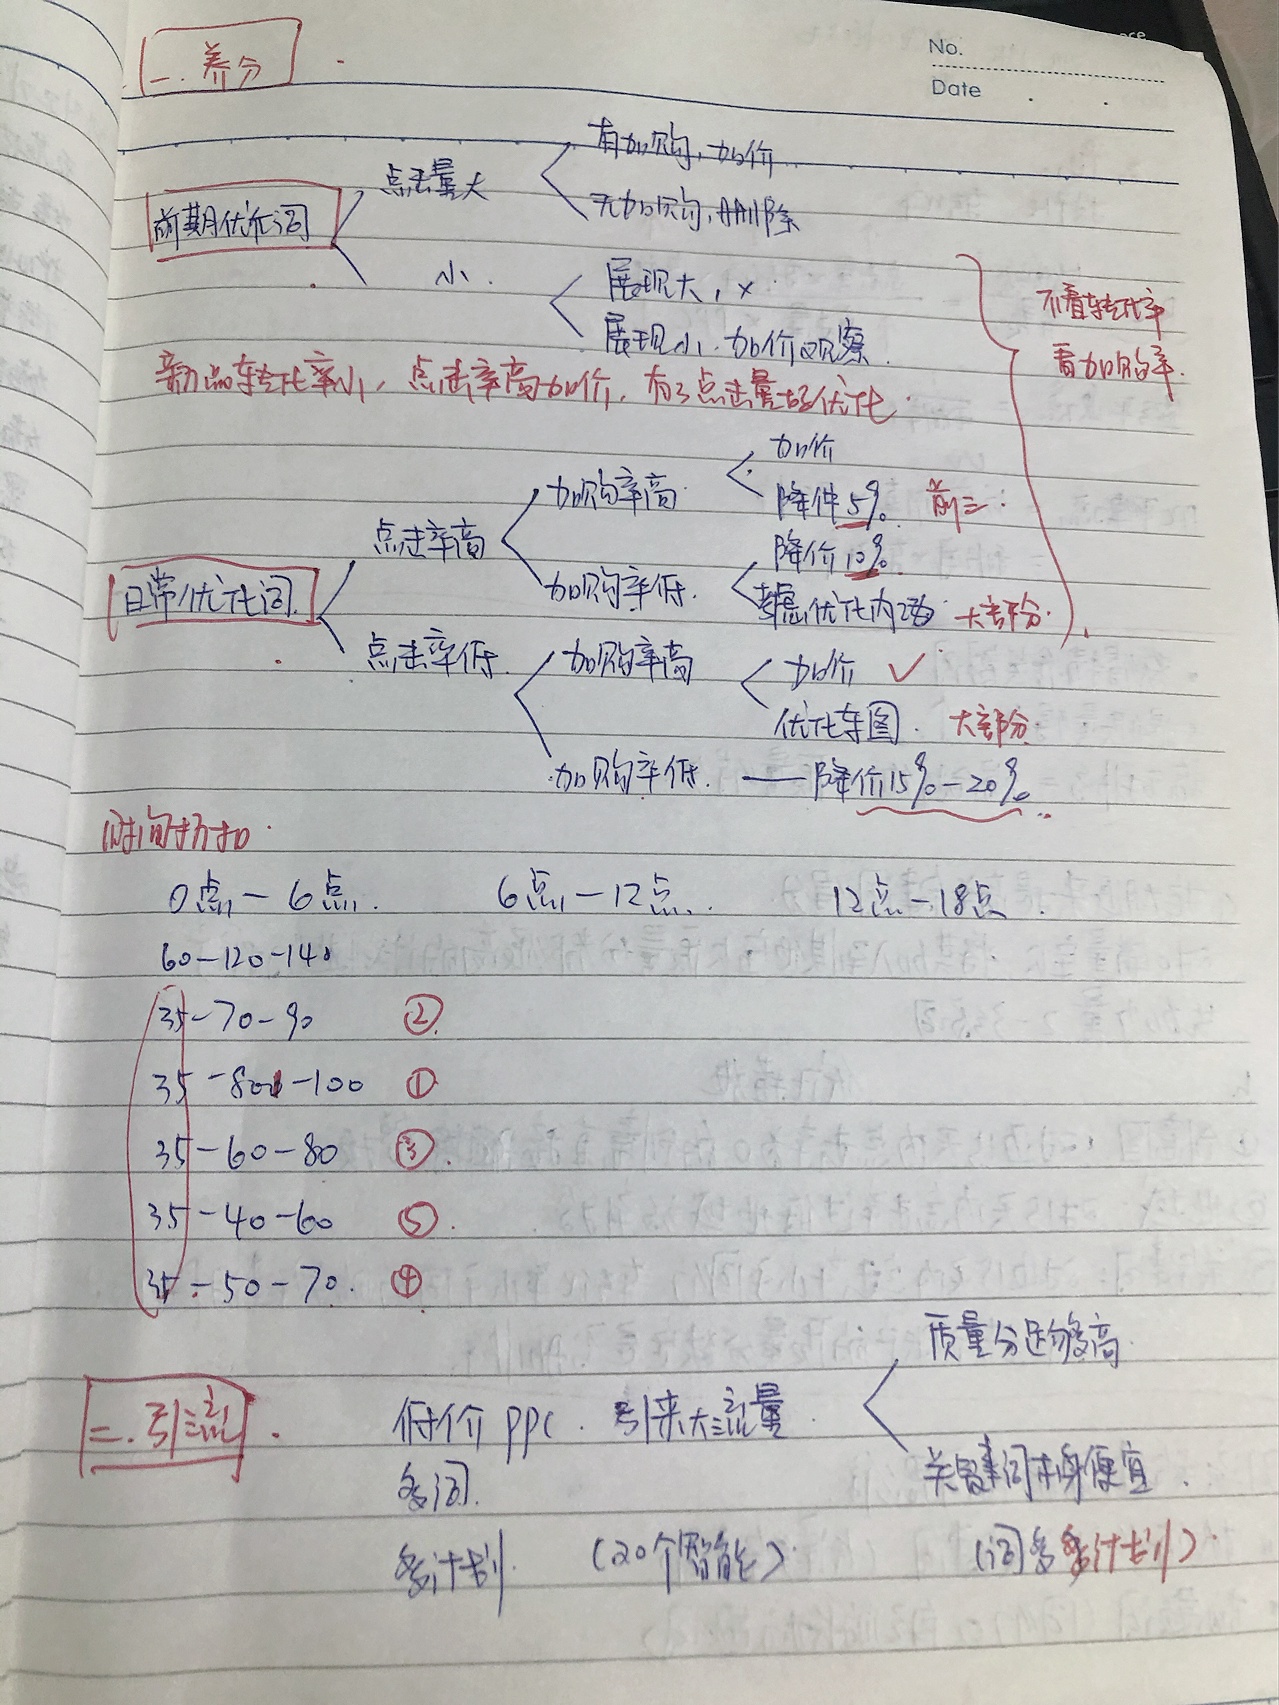 No.
Date
一. 养分
有加购, 加价
点击量大
无加购, 删除
前期优化词
小
展现大, ×
展现小. 加价观察
不看转化率
看加购率.
新品转化率小, 点击率高加价, 有了点击量好优化.
加价
加购率高
降价5% 前三.
点击率高
降价10%
加购率低.
考虑优化内功 大部分.
日常优化词
点击率低
加购率高
加价 ✓
优化车图. 大部分.
加购率低. — 降价15%-20%
时间折扣.
0点-6点. 6点-12点. 12点-18点.
60-120-140
35-70-90 ②
35-80-100 ①
35-60-80 ③
35-40-60 ⑤
35-50-70. ④
质量分足够高.
二. 引流. 低价ppc. 引来大流量.
关键词本身便宜.
多词.
多计划. (20个智能) (词多多计划).